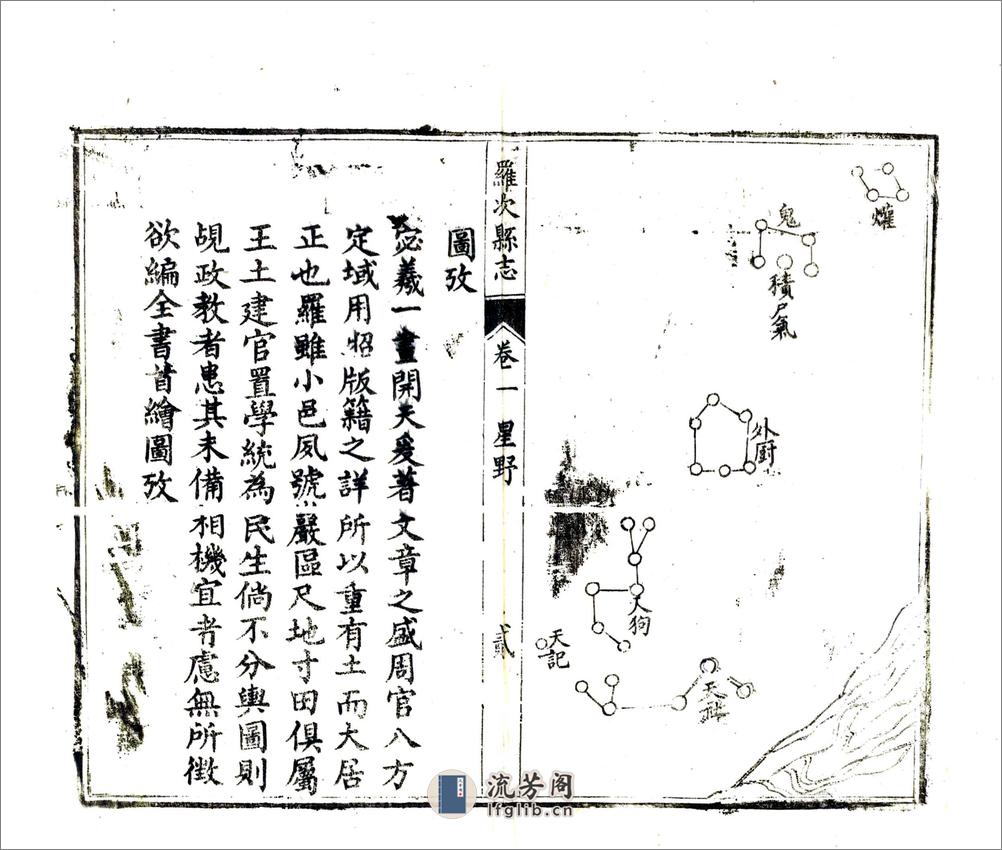 爟
鬼
積尸氣
外厨
天狗
天記
天社
羅次縣志
卷一
星野
貳
圖攷
宓羲一畫開天爰著文章之盛周官八方
定域用昭版籍之詳所以重有土而大居
正也羅雖小邑夙號巖區尺地寸田俱屬
王土建官置學統為民生倘不分輿圖則
覘政教者患其未備相機宜者慮無所徵
欲編全書首繪圖攷
流芳阁
lfglib.cn